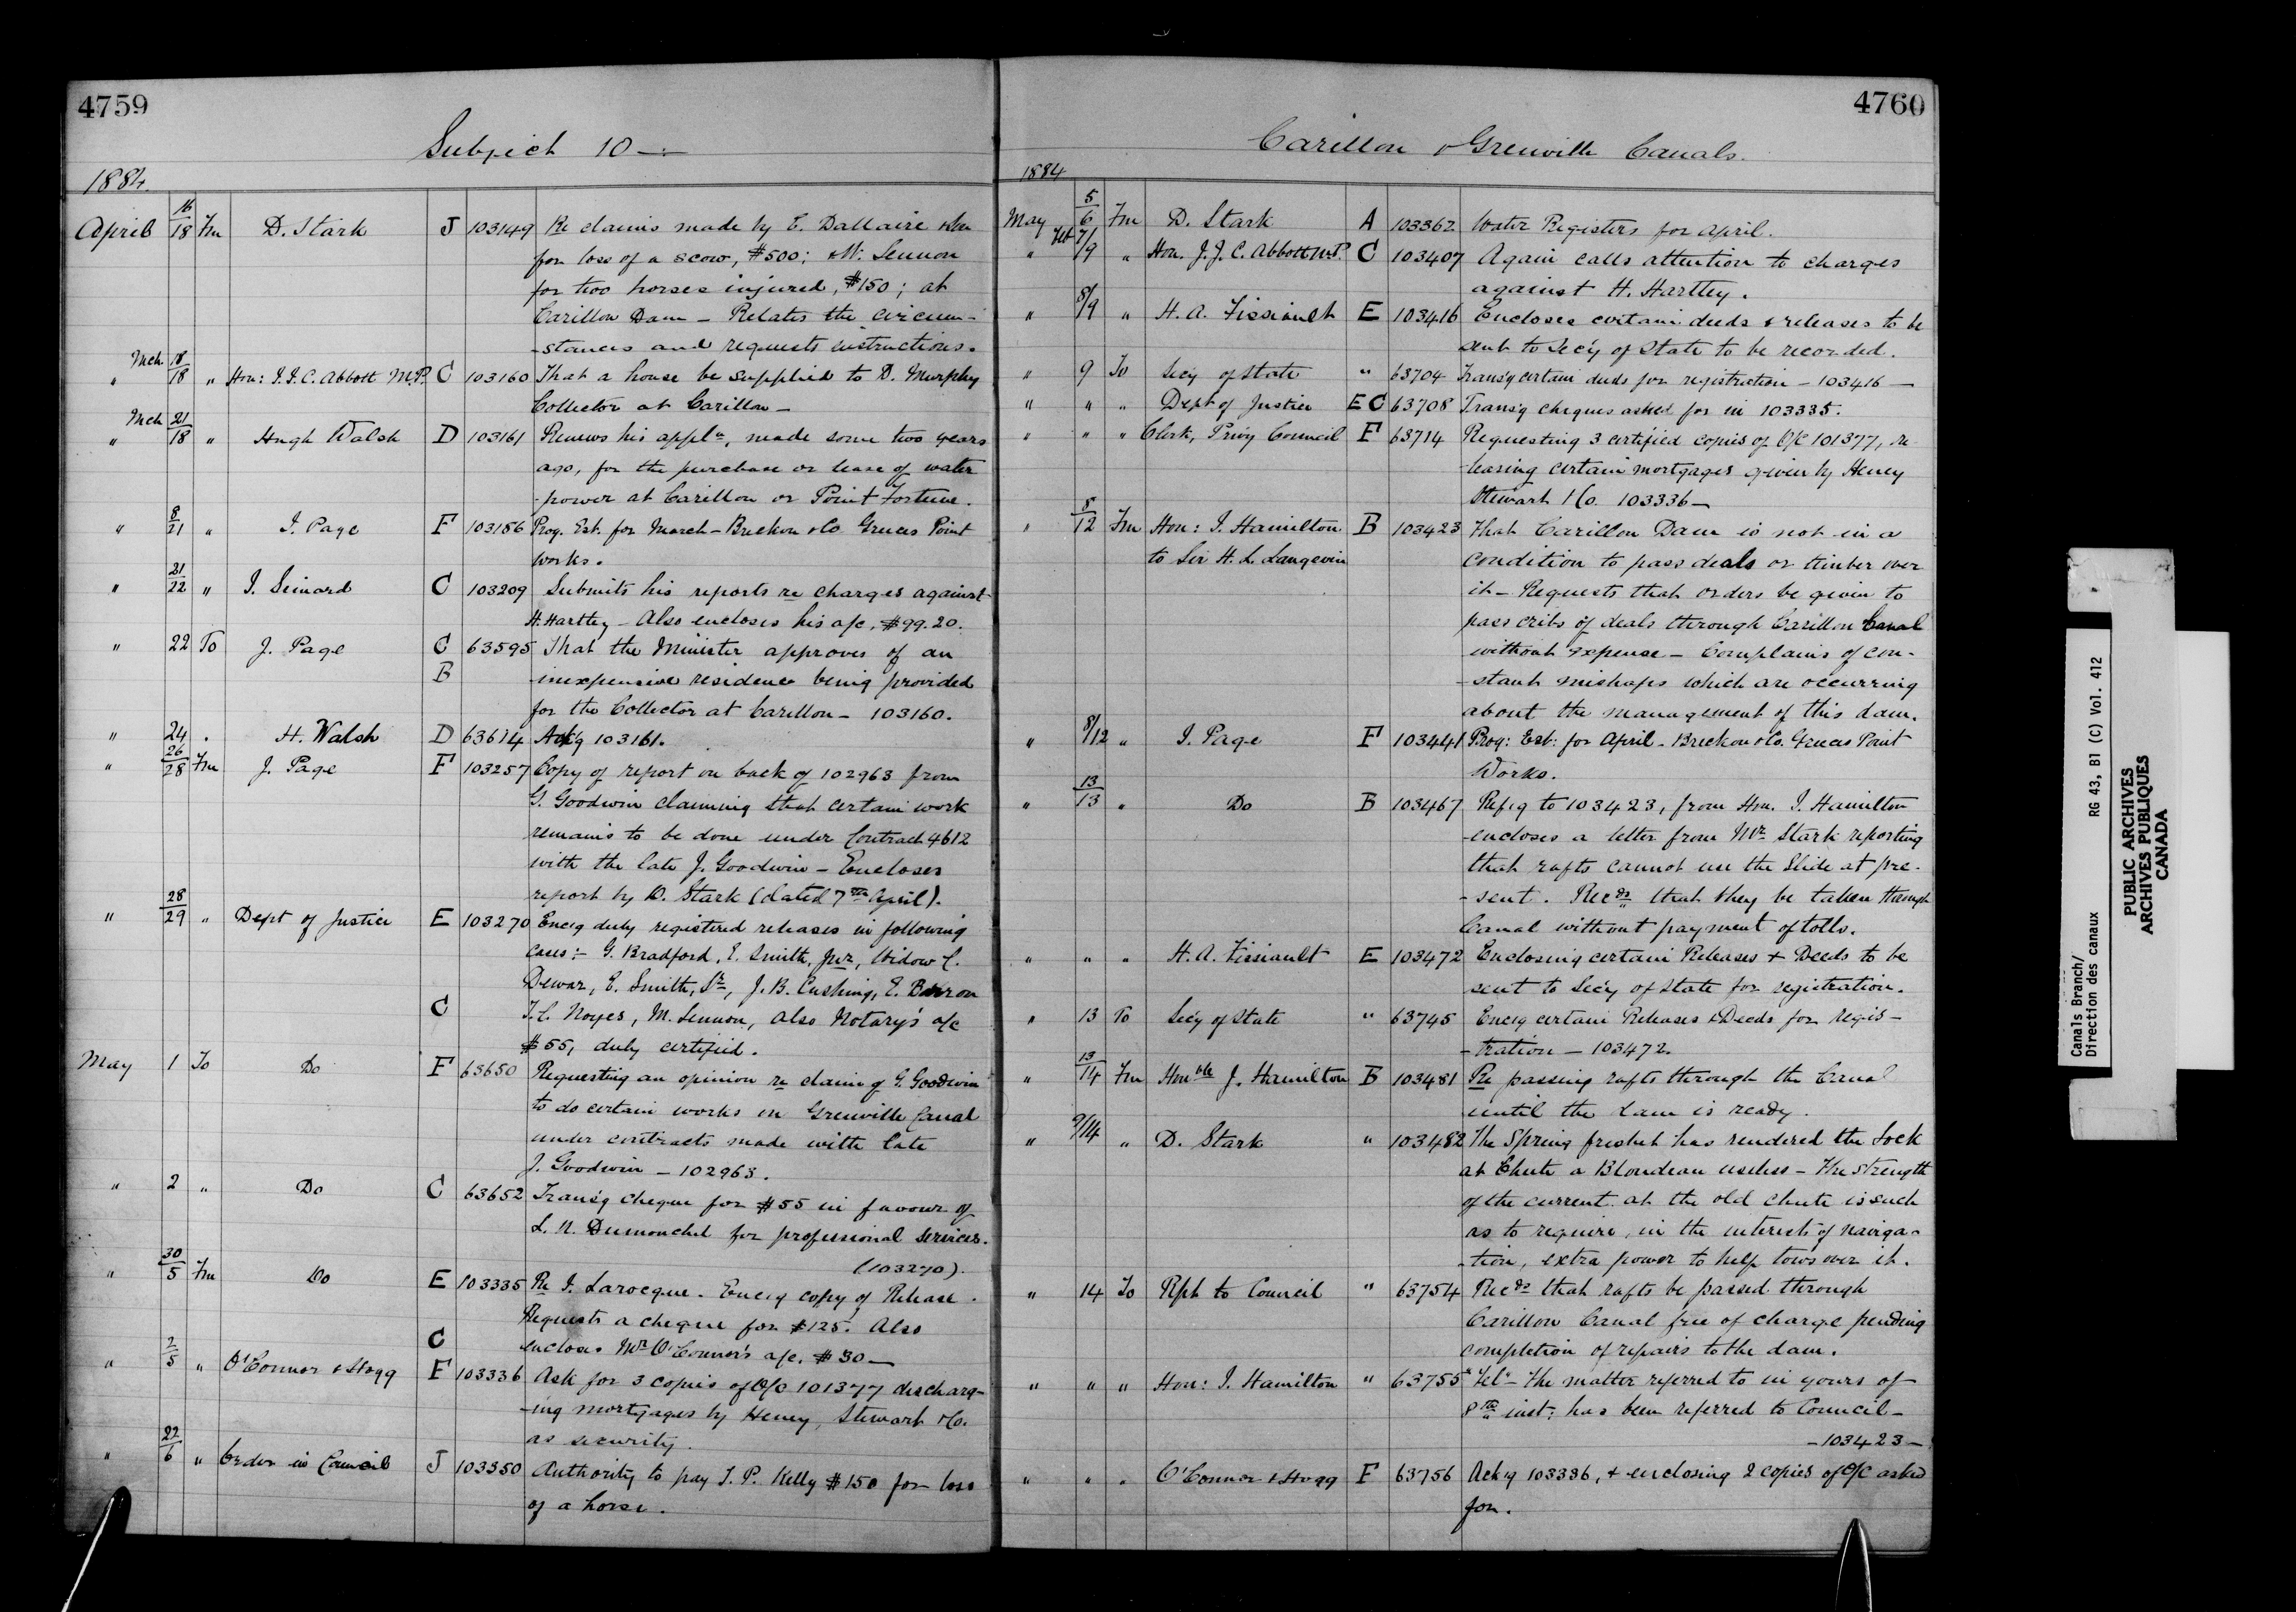 4759
Subject 10 —
1884.
April 16/18 Fm D. Stark J 103149 Re claims made by E. Dallaire
for loss of a scow, $500; & M. Lennon
for two horses injured, $150; at
Carillon Dam — Relates the circum-
-stances and requests instructions.
" Mch 18/18 " Hon: J.J.C. Abbott M.P. C 103160 That a house be supplied to D. Murphy
Collector at Carillon —
" Mch 21/18 " Hugh Walsh D 103161 Renews his appln, made some two years
ago, for the purchase or lease of water
-power at Carillon or Point Fortune.
" 8/21 " J. Page F 103186 Prog. Est. for March — Breckon & Co Greeces Point
works.
" 21/22 " J. Simard C 103209 Submits his reports re charges against
H. Hartley — Also encloses his a/c, $99.20.
" 22 To J. Page C 63595 That the Minister approves of an
B inexpensive residence being provided
for the Collector at Carillon — 103160.
" 24 . H. Walsh D 63614 Ack'g 103161.
" 26/28 Fm J. Page F 103257 Copy of report on back of 102963 from
G. Goodwin claiming that certain work
remains to be done under Contract 4612
with the late J. Goodwin — Encloses
report by D. Stark (dated 7th April).
" 28/29 " Dept of Justice E 103270 Encg duly registered releases in following
cases:- G. Bradford, E. Smith, Jnr, Widow C.
Dewar, E. Smith, Sr, J. B. Cushing, E. Barron
C T. C. Noyes, M. Lennon, also Notary's a/c
$55, duly certified.
May 1 To Do F 63650 Requesting an opinion re claim of G. Goodwin
to do certain works on Grenville Canal
under contracts made with late
J. Goodwin — 102963.
" 2 " Do C 63652 Trans'g cheque for $55 in favour of
L. N. Dumouchel for professional services.
(103270).
" 30/5 Fm Do E 103335 Re J. Larocque. Encg copy of Release.
Requests a cheque for $125. Also
C encloses Mr O'Connor's a/c. $30 —
" 2/5 " O'Connor & Hogg F 103336 Ask for 3 copies of O/C 101377 discharg-
-ing mortgages by Heney, Stewart & Co.
as security.
" 22/6 " Order in Council J 103350 Authority to pay T. P. Kelly $150 for loss
of a horse.
4760
Carillon & Grenville Canals.
1884
May 5/6 Fm D. Stark A 103362 Water Registers for April.
" Feb 7/9 " Hon. J. J. C. Abbott M.P. C 103407 Again calls attention to charges
against H. Hartley.
" 8/9 " H. A. Fissiault E 103416 Encloses certain deeds & releases to be
sent to Sec'y of State to be recorded.
" 9 To Sec'y of State " 63704 Trans'g certain deeds for registration — 103416 —
" " " Dept of Justice E C 63708 Trans'g cheques asked for in 103335.
" " " Clerk, Privy Council F 63714 Requesting 3 certified copies of O/C 101377, re-
-leasing certain mortgages given by Heney
Stewart & Co. 103336 —
" 8/12 Fm Hon: J. Hamilton B 103423 That Carillon Dam is not in a
to Sir H. L. Langevin condition to pass deals or timber over
it — Requests that orders be given to
pass cribs of deals through Carillon Canal
without expense — Complains of con-
-stant mishaps which are occurring
about the management of this dam.
" 8/12 " J. Page F 103441 Prog: Est: for April — Breckon & Co. Greeces Point
Works.
" 13/13 " Do B 103467 Refg to 103423, from Hon. J. Hamilton
encloses a letter from Mr Stark reporting
that rafts cannot use the Slide at pre-
-sent. Recds that they be taken through
Canal without payment of tolls.
" " " H. A. Fissiault E 103472 Enclosing certain Releases & Deeds to be
sent to Sec'y of State for registration.
" 13 To Sec'y of State " 63745 Encg certain Releases & Deeds for regis-
-tration — 103472.
" 13/14 Fm Honble J. Hamilton B 103481 Re passing rafts through the Canal
until the dam is ready.
" 9/14 " D. Stark " 103482 The Spring freshet has rendered the Lock
at Chute a Blondeau useless — The strength
of the current at the old chute is such
as to require, in the interests of naviga-
-tion, extra power to help tows over it.
" 14 To Rpt to Council " 63754 Recds that rafts be passed through
Carillon Canal free of charge pending
completion of repairs to the dam.
" " " Hon: J. Hamilton " 63755 "Tel" — The matter referred to in yours of
8th inst: has been referred to Council —
— 103423 —
" " " O'Connor & Hogg F 63756 Ack'g 103336, & enclosing 2 copies of O/C asked
for.
Canals Branch/
Direction des canaux RG 43, B1 (C) Vol. 412
PUBLIC ARCHIVES
ARCHIVES PUBLIQUES
CANADA